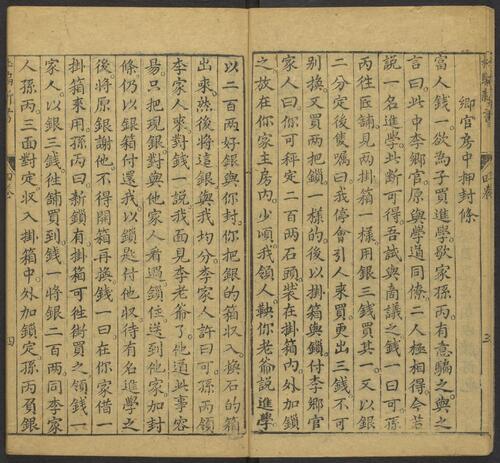 鄉官房中押封條
富人錢一欲為子買進學歇家孫丙有意騙之與之
言曰此中李鄉官原與學道同僚二人極相得今若
說一名進學此斷可得吾試與商議之錢一曰可孫
丙徃匠舖見兩掛箱一樣用銀三錢買其一又以銀
二分定後隻囑曰我停會引人來買更出三錢不可
別換又買兩把鎖一樣的後以掛箱與鎖付李鄉官
家人曰你可秤定二百兩石頭裝在掛箱內外加鎖
之放在你家主房內少頃我領人鞅你老爺說進學
四
以二百兩好銀與你封你把銀的箱收入換石的箱
出來然後將這銀與我均分李家人許曰可孫丙領
李家人來對錢一說我面見李老爺了他道此事容
易只把現銀對與他家人看過鎖住送到他家加封
條仍以銀箱付還我以鎖匙付他收待有名進學之
後將原銀謝他不得開箱再換錢一曰在你家借一
掛箱來用孫丙曰新鎖有掛箱可徃街買之領錢一
家人以銀三錢徃舖買到錢一將銀二百兩同李家
人孫丙三面對定收入掛箱中外加鎖定孫丙負銀